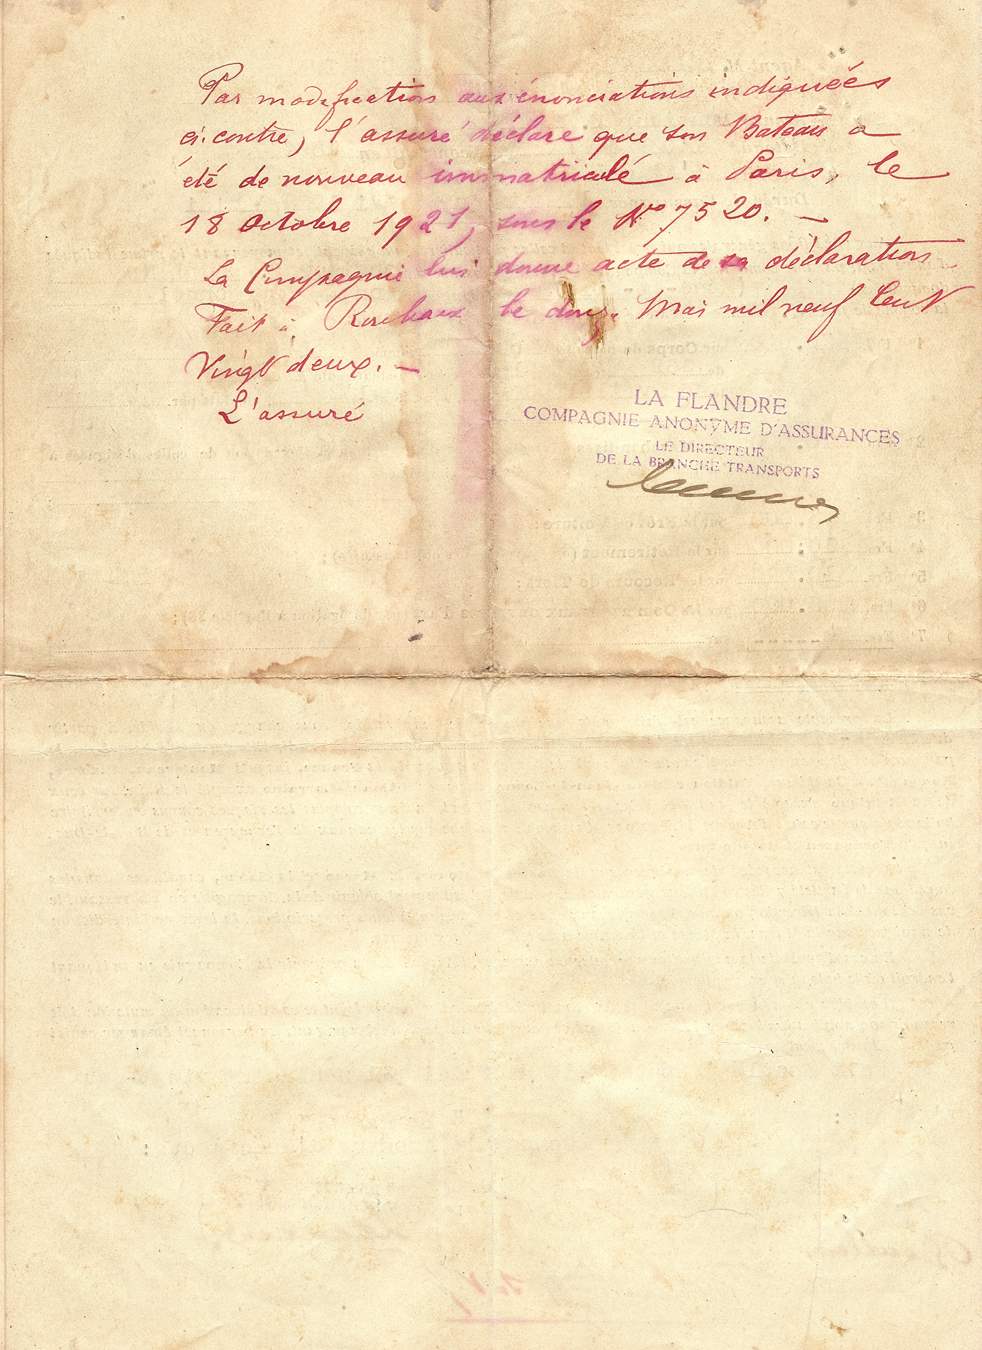 Par modification aux énonciations indiquées
ci-contre, l'assuré déclare que son Bateau a
été de nouveau immatriculé à Paris, le
18 octobre 1921, sous le No 7520. —
La Compagnie lui donne acte de sa déclaration
Fait à Roubaix le Mai mil neuf Cent
Vingt deux. —
L'assuré
LA FLANDRE
COMPAGNIE ANONYME D'ASSURANCES
LE DIRECTEUR
DE LA BRANCHE TRANSPORTS